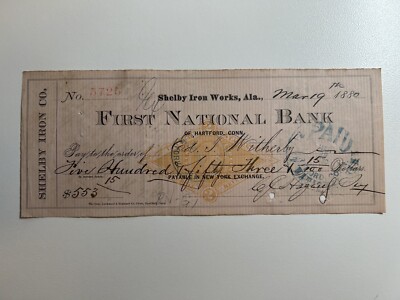 SHELBY IRON CO.
No. 5725
Shelby Iron Works, Ala., Mar 19th 1880
FIRST NATIONAL BANK
OF HARTFORD, CONN.
Pay to the order of Ed. S. Witherby
Five Hundred & fifty Three & 15/100 Dollars.
PAYABLE IN NEW YORK EXCHANGE.
$553 15
PAID